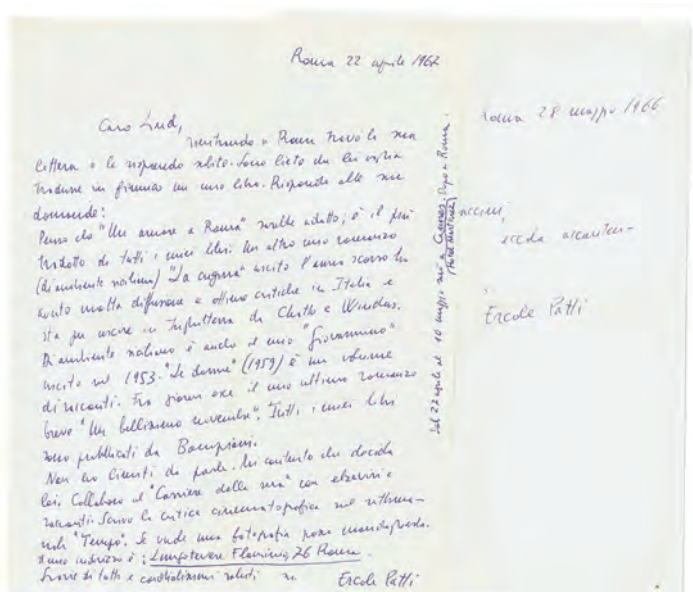 Roma 22 aprile 1967
Caro Lind,
rientrando a Roma trovo la sua
lettera e le rispondo subito. Sono lieto che lei voglia
tradurre in un mio libro. Rispondo alle sue
domande:
Penso che "Un amore a Roma" sarebbe adatto; è il più
tradotto di tutti i miei libri. Un altro mio romanzo
(di ambiente siciliano) "La cugina" uscito l'anno scorso ha
avuto molta diffusione e ottime critiche in Italia e
sta per uscire in Inghilterra da Chatto e Windus.
Di ambiente siciliano è anche il mio "Giovannino"
uscito nel 1953. "Le donne" (1959) è un volume
di racconti. Fra giorni esce il mio ultimo romanzo
breve "Un bellissimo novembre". Tutti i miei libri
sono pubblicati da Bompiani.
Non ho da parte. che decida
lei. Collaboro al "Corriere della sera" con elzeviri e
racconti. Scrivo la critica cinematografica sul settima-
nale "Tempo". Se vuole una fotografia posso mandargliela.
Il mio indirizzo è: Lungotevere Flaminio, 26 Roma.
Grazie di tutto e cordialissimi saluti
Ercole Patti
Dal 22 aprile al 10 maggio sarò a Cannes. Dopo a Roma.
(Hotel Martinez)
Roma 28 maggio 1966
Ercole Patti